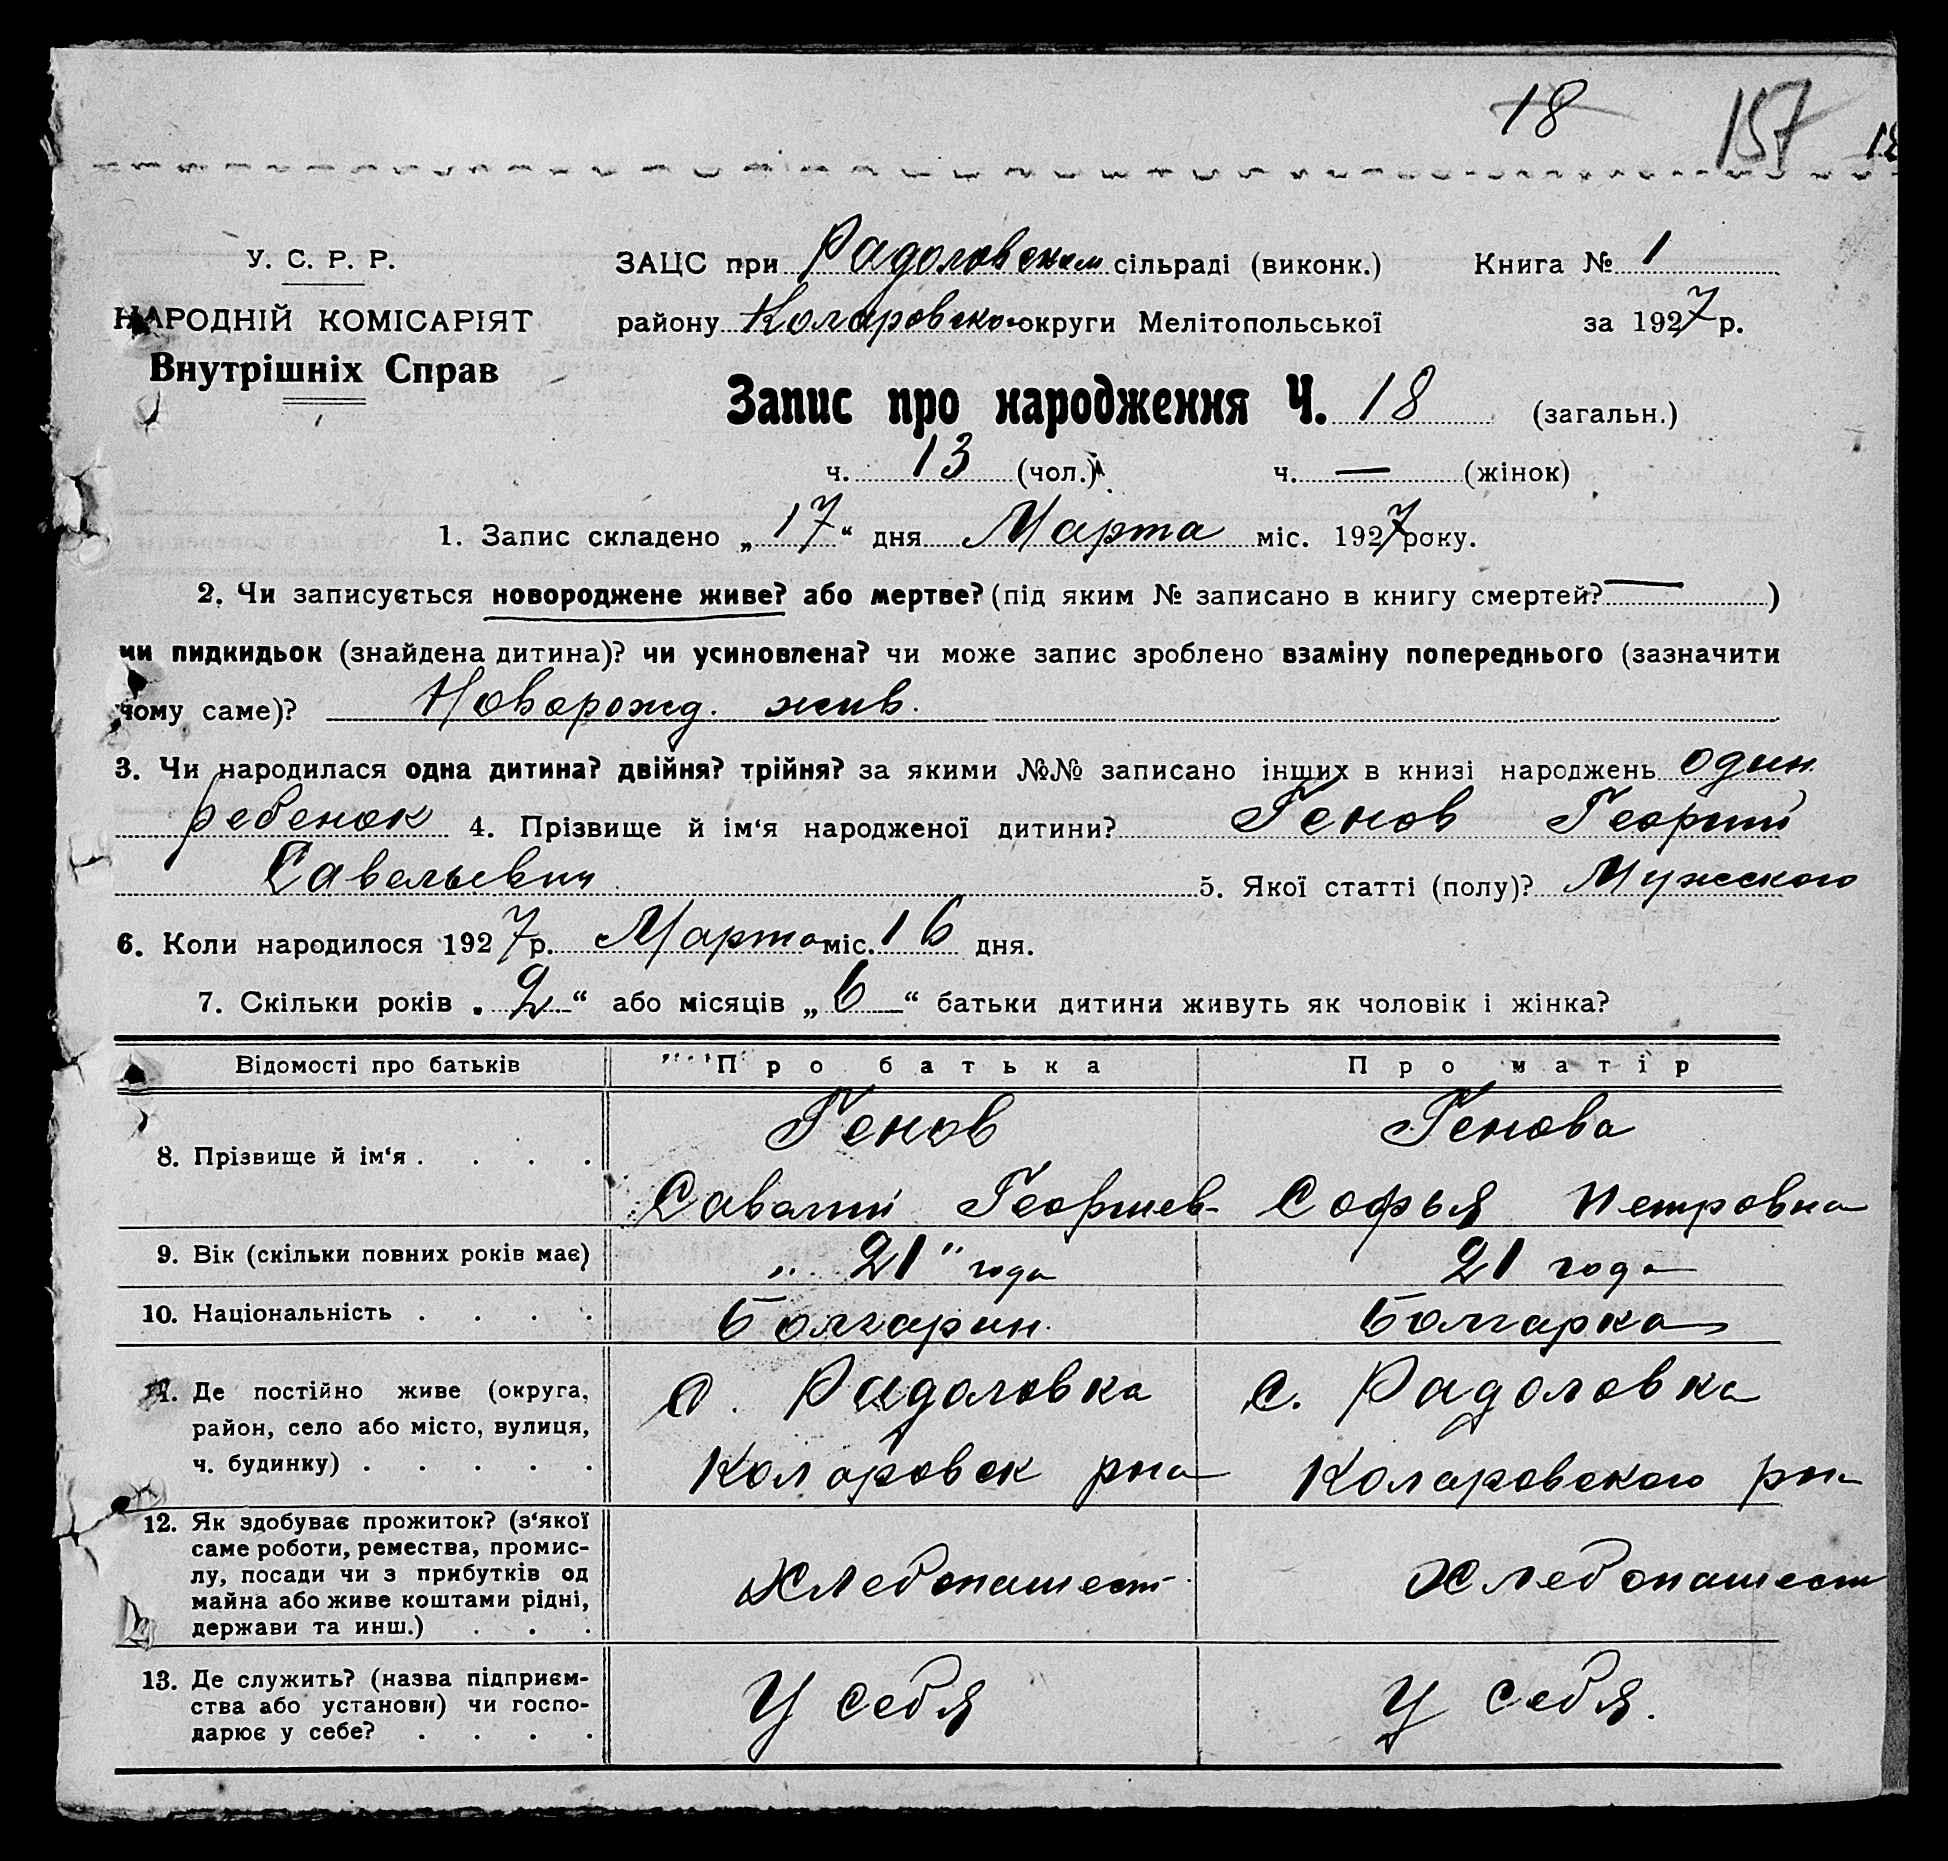 18 157
У. С. Р. Р. ЗАЦС при Радоловском сільраді (виконк.) Книга № 1
НАРОДНІЙ КОМІСАРІЯТ району Коларовско округи Мелітопольської за 1927 р.
Внутрішніх Справ
Запис про народження Ч. 18 (загальн.)
ч. 13 (чол.) ч. — (жінок)
1. Запис складено „17“ дня Марта міс. 1927 року.
2. Чи записується новороджене живе? або мертве? (під яким № записано в книгу смертей? — )
чи пидкидьок (знайдена дитина)? чи усиновлена? чи може запис зроблено взаміну попереднього (зазначити
чому саме)? Новорожд. жив.
3. Чи народилася одна дитина? двійня? трійня? за якими №№ записано інших в книзі народжень один
ребенок 4. Прізвище й ім‘я народженої дитини? Генов Георгий
Савельевич 5. Якої статті (полу)? Мужского
6. Коли народилося 1927 р. Марта міс. 16 дня.
7. Скільки років „2“ або місяців „6“ батьки дитини живуть як чоловік і жінка?
Відомості про батьків Про батька Про матір
Генов Генова
8. Прізвище й ім‘я . . . .
Савелий Георгиев- Софья Петровна
9. Вік (скільки повних років має) „21“ года 21 года
10. Національність . . . . Болгарин. Болгарка
11. Де постійно живе (округа, с. Радоловка с. Радоловка
район, село або місто, вулиця,
ч. будинку) . . . . . Коларовск рна Коларовского рн
12. Як здобуває прожиток? (з‘якої
саме роботи, ремества, промис-
лу, посади чи з прибутків од Хлебопашест Хлебопашест
майна або живе коштами рідні,
держави та инш.) . . .
13. Де служить? (назва підприєм-
ства або установи) чи госпо- У себя У себя.
дарює у себе? . . . .